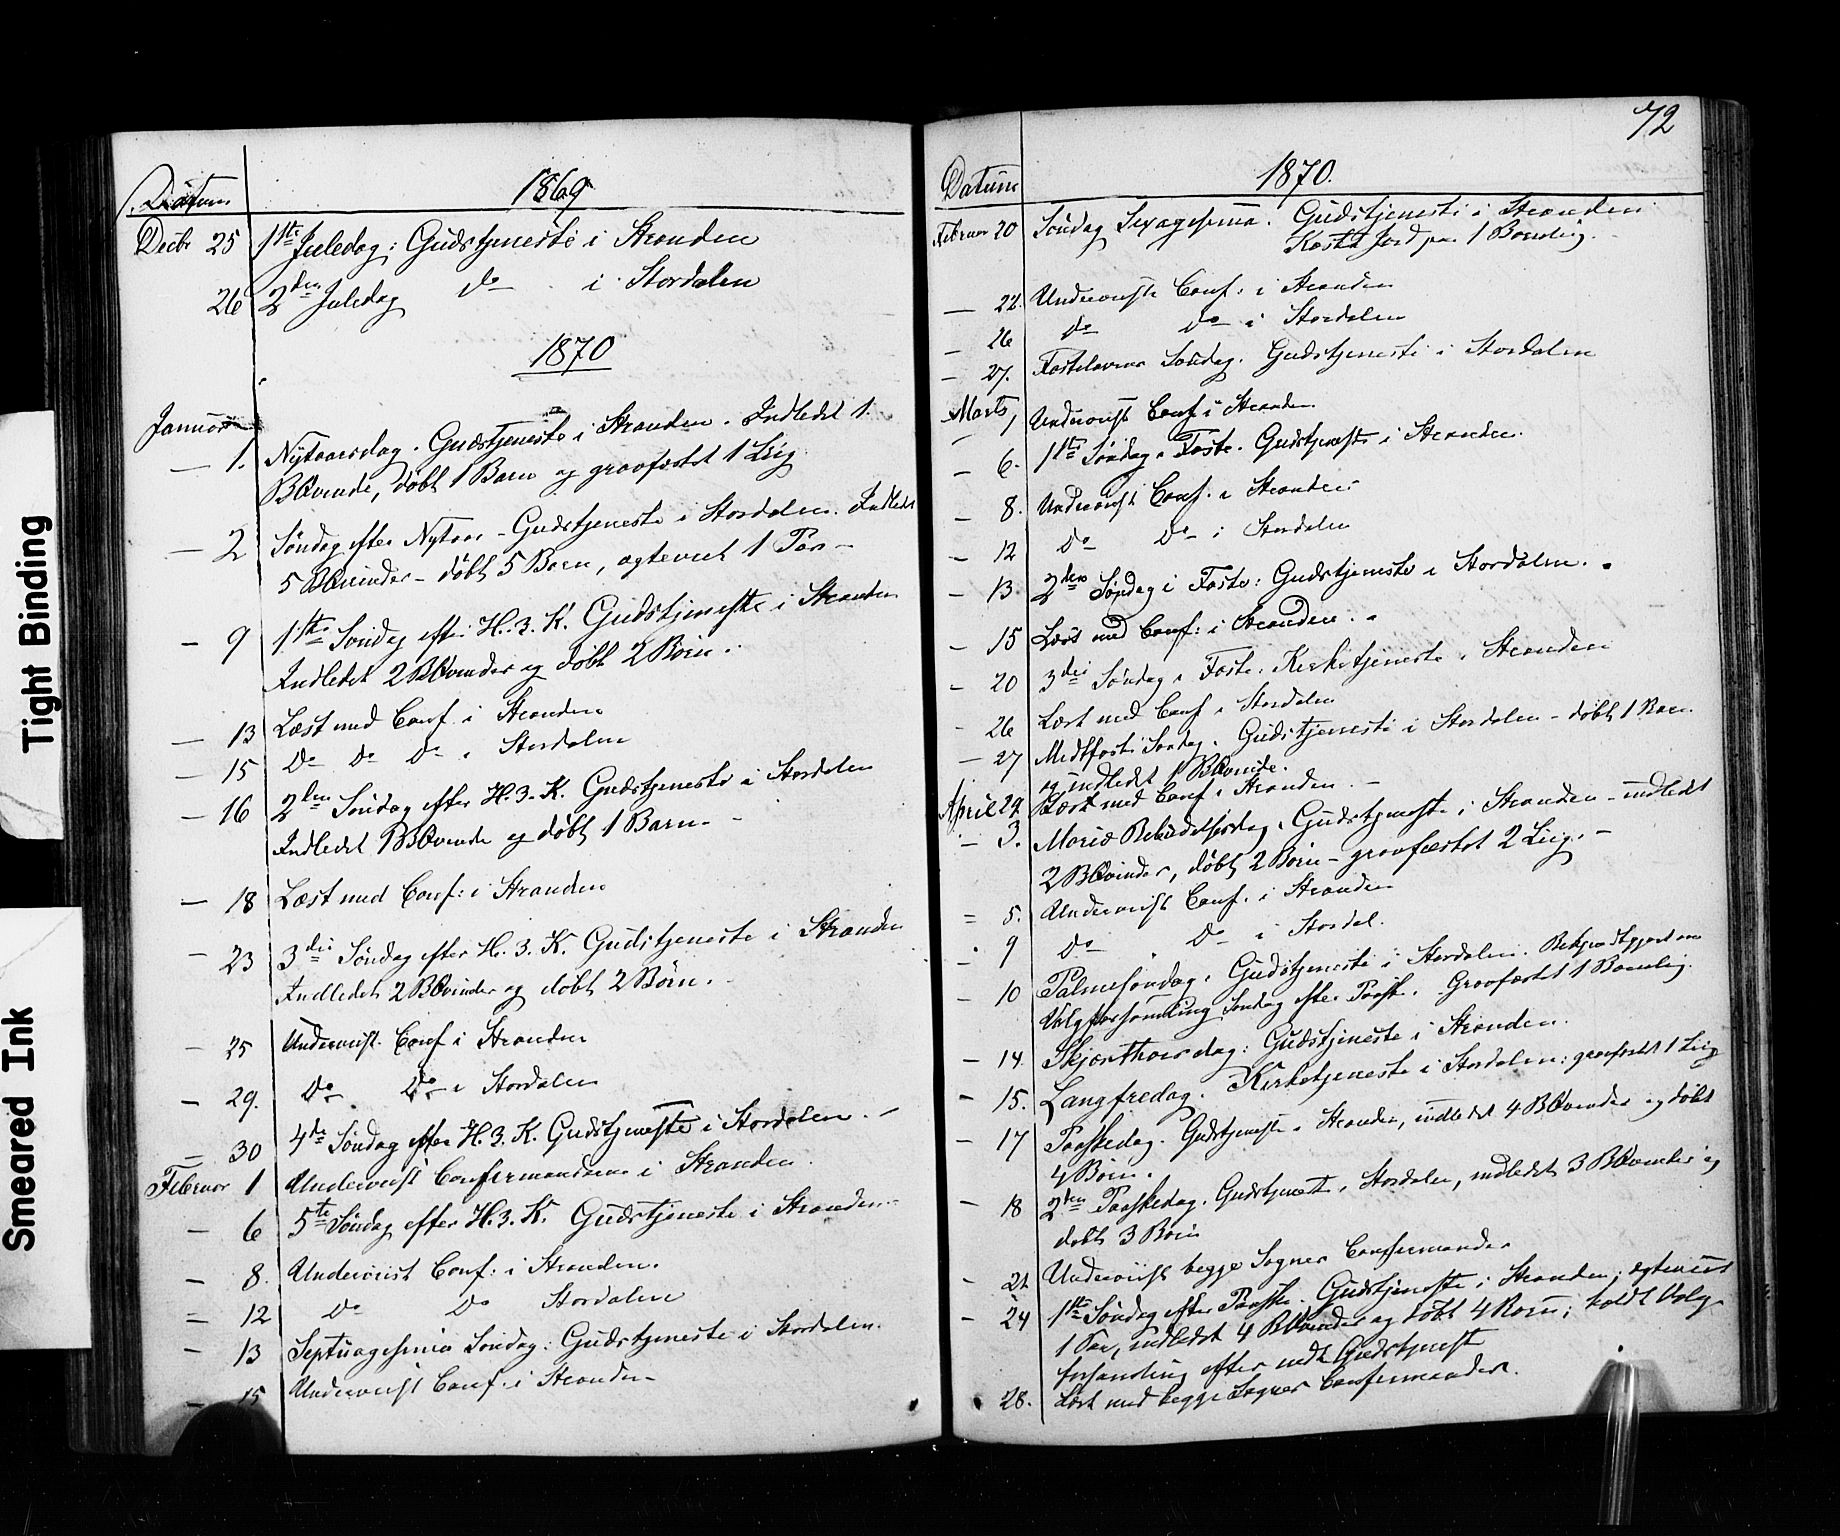 Datum 1869
Decbr 25 1ste Juledag: Gudstjeneste i Stranden
26 2den Juledag Do i Stordalen
1870
Januar
— 1. Nytaarsdag. Gudstjeneste i Stranden. Indledet 1
BQvinde, døbt 1 Barn og gravfæstet 1 Liig
— 2 Søndag efter Nytaar - Gudstjeneste i Stordalen. Indledt
5 BQvinder - døbt 5 Børn, ægteviet 1 Par -
— 9 1ste Søndag efter H. 3. K. Gudstjeneste i Stranden
Indledet 2 BQvinder og døbt 2 Børn.
— 13 Læst med Conf. i Stranden
— 15 Do Do Do i Stordalen
— 16 2den Søndag efter H. 3. K. Gudstjeneste i Stordalen
Indledet 1 BQvinde og døbt 1 Barn. -
— 18 Læst med Conf: i Stranden
— 23 3die Søndag efter H. 3. K. Gudstjeneste i Stranden
Indledet 2 BQvinder og døbt 2 Børn.
— 25 Underviist Conf i Stranden
— 29. Do Do i Stordalen
— 30 4de Søndag efter H. 3. K. Gudstjeneste i Stordalen. -
Februar 1 Underviist Confirmanderne i Stranden.
— 6 5te Søndag efter H. 3. K. Gudstjeneste i Stranden. -
— 8. Underviist Conf: i Stranden.
— 12 Do Do Stordalen
— 13 Septuagesima Søndag: Gudstjeneste i Stordalen.
— 15 Underviist Conf. i Stranden
72
Datum 1870.
Februar 20 Søndag Sexagesima. Gudstjeneste i Stranden
Kastet Jord paa 1 Barnelig. -
— 22. Underviist Conf: i Stranden
— 26 Do Do i Stordalen
— 27. Fastelavns Søndag. Gudstjeneste i Stordalen
Marts 1 Underviist Conf i Stranden
— 6. 1ste Søndag i Faste. Gudstjeneste i Stranden.
— 8. Underviist Conf. i Stranden
— 12 Do Do i Stordalen
— 13 2den Søndag i Faste: Gudstjeneste i Stordalen.
— 15 Læst med Conf: i Stranden.
— 20 3die Søndag i Faste. Kirketjeneste i Stranden
— 26 Læst med Conf i Stordalen
— 27 Midtfaste Søndag. Gudstjeneste i Stordalen - døbt 1 Barn
og indledet 1 BQvinde.
April 29 Læst med Conf i Stranden. -
— 3. Mariæ Bebudelsesdag. Gudstjeneste i Stranden - indledet
2 BQvinder, døbt 2 Børn - gravfæstet 2 Liig. -
— 5. Underviist Conf. i Stranden
— 9 Do Do i Stordal.
— 10 Palmesøndag. Gudstjeneste i Stordalen. Bekjendtgjort om
Valgforsamling Søndag efter Paaske. Gravfæstet 1 Barnelig.
— 14. Skjærthorsdag: Gudstjeneste i Stranden.
— 15. Langfredag. Kirketjeneste i Stordalen: gravfæstet 1 Liig
— 17 Paaskedag. Gudstjeneste i Stranden, indledet 4 BQvinder og døbt
4 Børn.
— 18 2den Paaskedag. Gudstjeneste i Stordalen, indledet 3 BQvinder og
døbt 3 Børn
— 21 Underviist begge Sognes Confirmander
— 24 1ste Søndag efter Paaske. Gudstjeneste i Stranden; ægteviet
1 Par, indledet 4 BQvinder og døbt 4 Børn; holdt Valg
forhandling efter endt Gudstjeneste
28. Læst med begge Sognes Confirmander.
Tight Binding
Smeared Ink